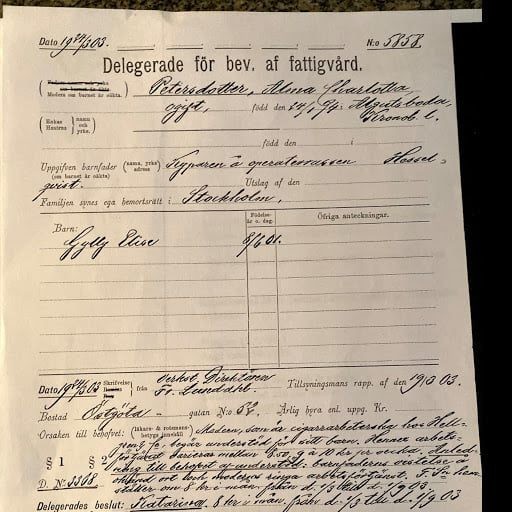 Dato 19 24/3 03. N:o 5858.
Delegerade för bev. af fattigvård.
Modern (om barnet är oäkta). Petersdotter, Alma Charlotta,
ogift, född den 24/1 74 Algutsboda,
Enkas Hustrus namn och yrke. Kronob l.
född den i
Uppgifven barnfader (om barnet är oäkta) (namn, yrke, adress) Kyparen å operaterrassen Hassel-
qvist. Utslag af den
Familjen synes ega bemortsrätt i Stockholm.
Barn: Födelse-år o. dag. Öfriga anteckningar.
Gylly Elise 8/6 01.
Dato 19 24/3 03 Skrifvelse från Verkst. Direktören Tillsyningsmans rapp. af den 19 03.
Fr. Lunddhl.
Bostad Östgöta - gatan N:o Årlig hyra enl. uppg. Kr.
Orsaken till behofvet: (läkare- & rotemans-betygs innehåll) Modern, som är cigarrarbeterska hos Hell-
begär understöd för sitt barn. Hennes arbets-
förtjenst varierar mellan 8,50 à 10 kr per vecka. Anled-
§ 1 § 2 ning till behofvet af understöd: barnfaderns vistelse å
D. N:o 3368 okänd ort och moderns ringa arbetsförtjenst. hem-
ställer om 8 kr i mån. från d. 1/3 till d. 1/9 03
Delegerades beslut: Katarina. 8 kr i mån. från d. 1/3 till d. 1/9 03